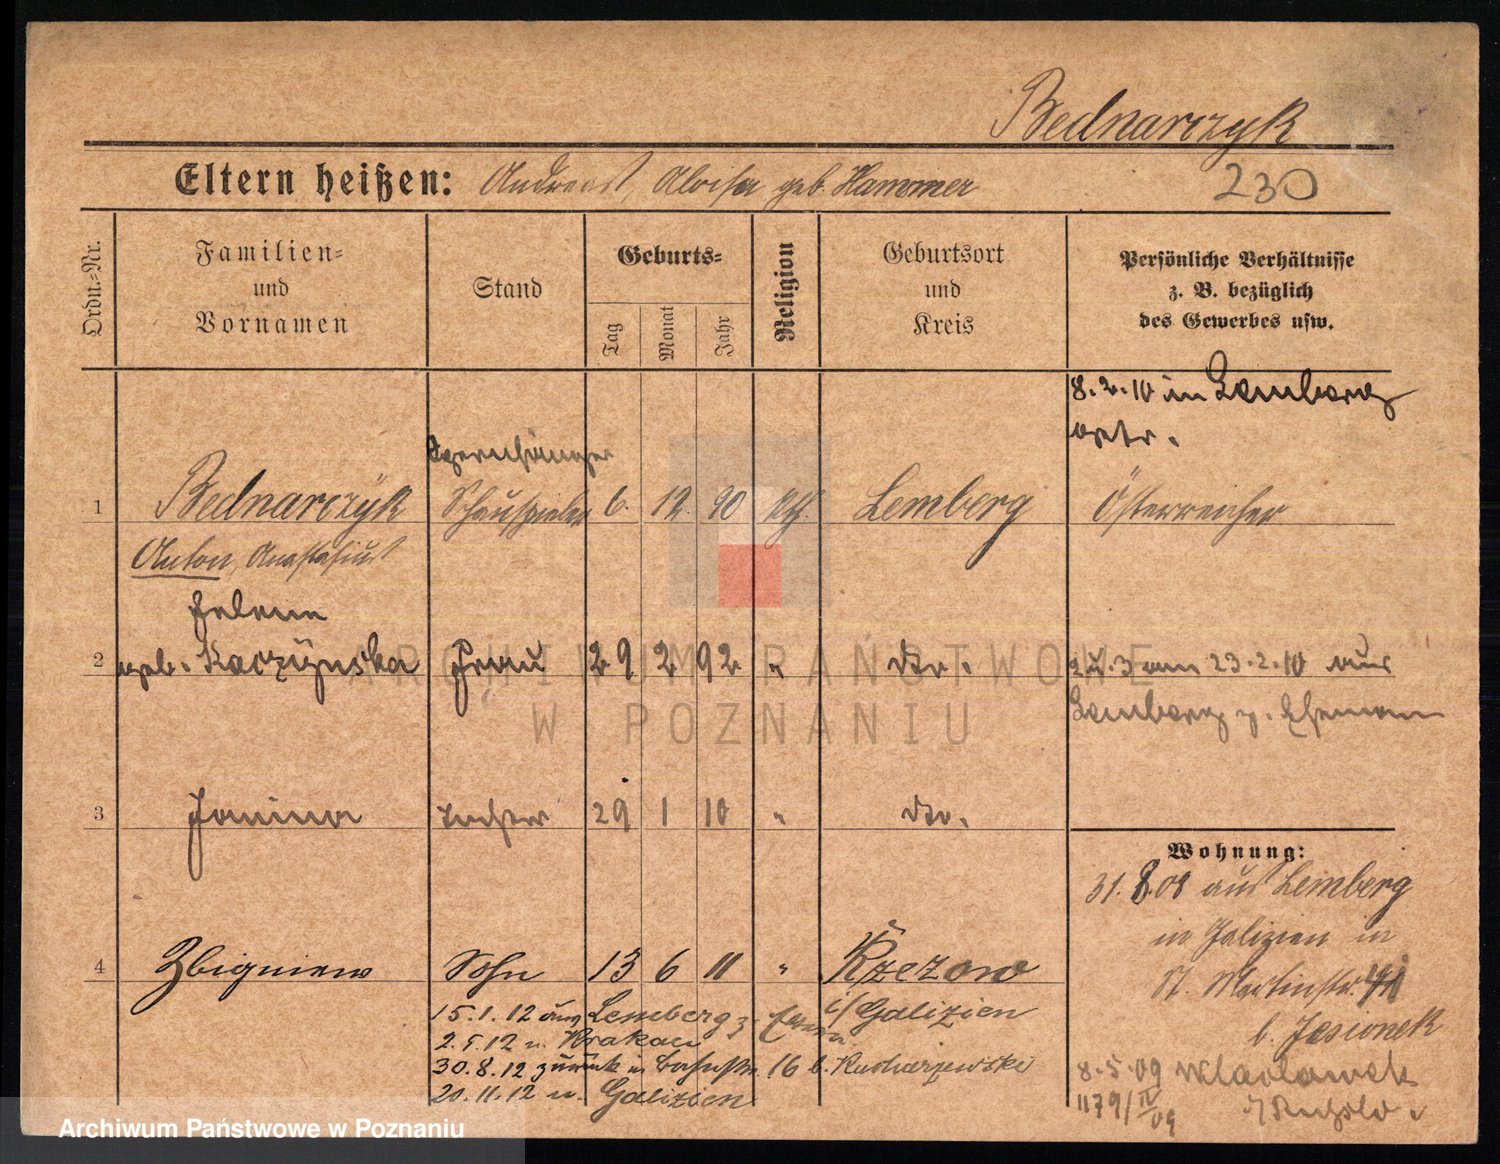 Bednarczyk
Eltern heißen: Andreas, Aloisa geb. Hammer
230
Ordn.-Nr.
Familien- und Vornamen
Stand
Geburts-
Tag
Monat
Jahr
Religion
Geburtsort und Kreis
Persönliche Verhältnisse z. B. bezüglich des Gewerbes usw.
8.2.10 in Lemberg
getr.
Opernsänger
1 Bednarczyk Schauspieler 6. 12. 90 kth. Lemberg Österreicher
Anton, Anastasius
Helene
2 geb. Kaczyńska Frau 29 2 92 " dto. 2 u. 3 am 23.2.10 aus
Lemberg z. Ehemann
3 Janina Tochter 29 1 10 " dto.
Wohnung:
31.8.08 aus Lemberg
in Galizien in
St. Martinstr. 41
b. Jesionek
8.5.09
1179/IV 09
4 Zbigniew Sohn 13 6 11 " Rzezow
i/Galizien
15.1.12 aus Lemberg z.
2.5.12 n. Krakau
30.8.12 zurück in 16 b. Kucharzewski
20.11.12 n. Galizien
ARCHIWUM PAŃSTWOWE
W POZNANIU
Archiwum Państwowe w Poznaniu